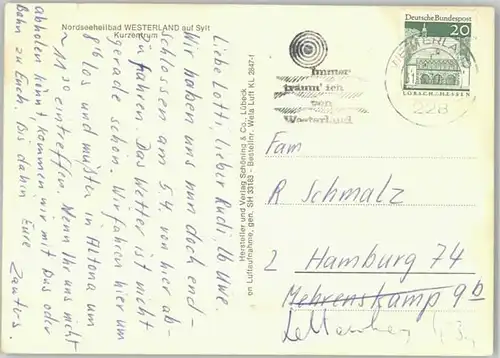 Nordseeheilbad WESTERLAND auf Sylt
Kurzentrum
Liebe Lotti, lieber Rudi, lb Uwe.
Wir haben uns nun doch ent-
schlossen am 5.4. von hier ab-
zufahren. Das Wetter ist nicht
gerade schön. Wir fahren hier um
8 16 los und müßten in Altona um
~ 11 30 eintreffen. Wenn Ihr uns nicht
abholen könnt, kommen wir mit Bus oder
Bahn zu Euch. Bis dahin Eure
Hersteller und Verlag Schöning & Co., Lübeck
en Luftaufnahme, gen. SH 33183 - Bestellnr. Wela Luft KL 2847-1
Immer
träum' ich
von
Westerland
Deutsche Bundespost
20
LORSCH/HESSEN
WESTERLAND
228
Fam
R Schmalz
2 Hamburg 74
Mehrenskamp 9b